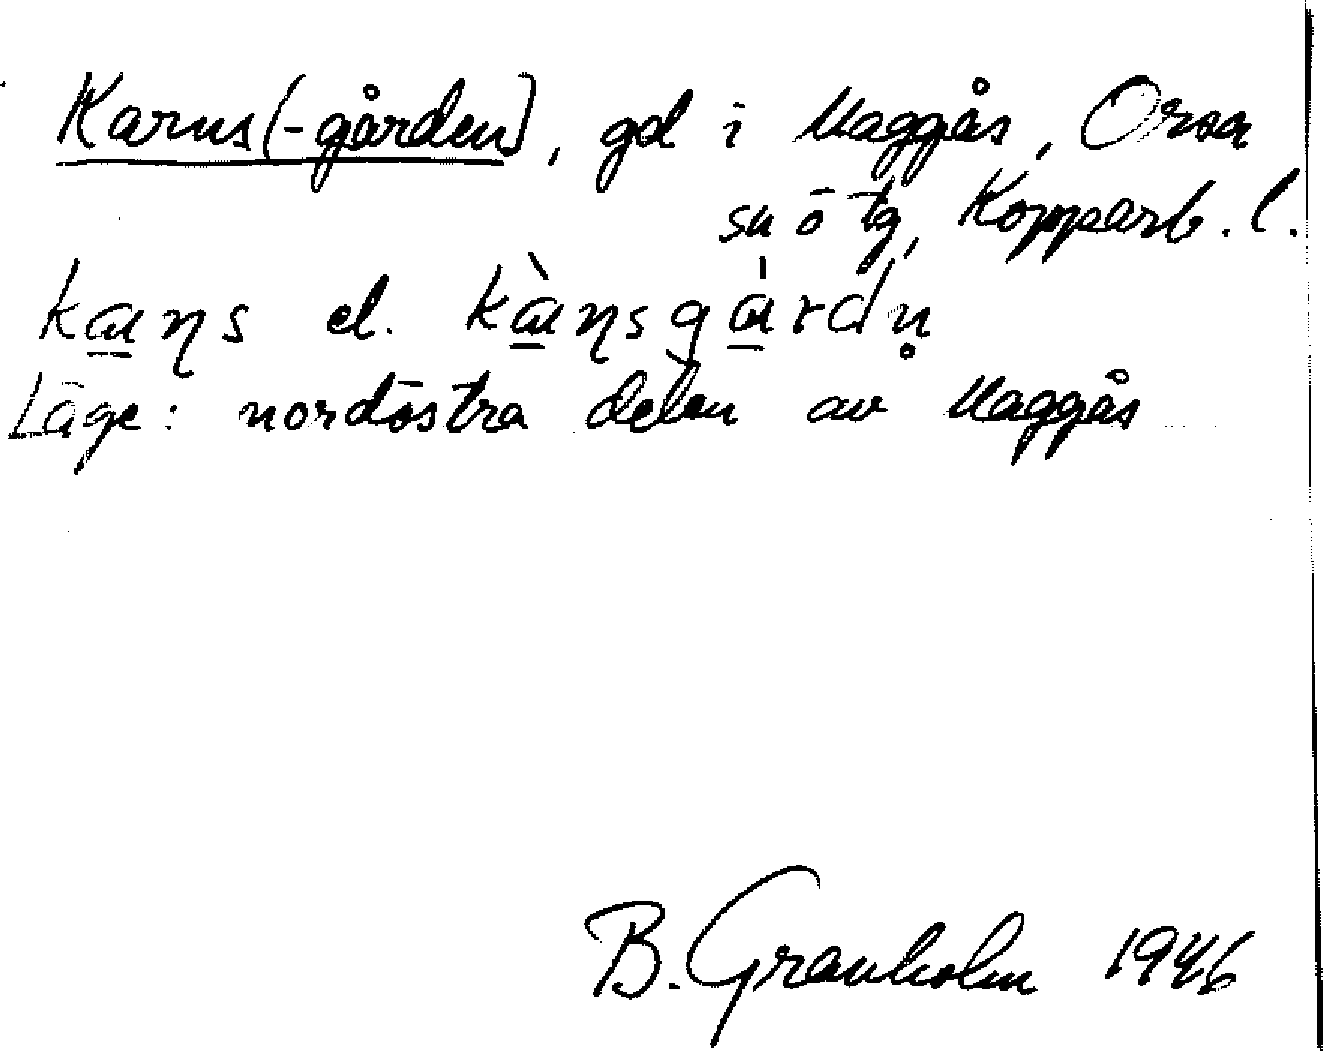 Karns(-gården), gd i Maggås, Orsa
sn ō tg, Kopparb. l.
Läge: nordöstra delen av Maggås
B. Granholm 1946